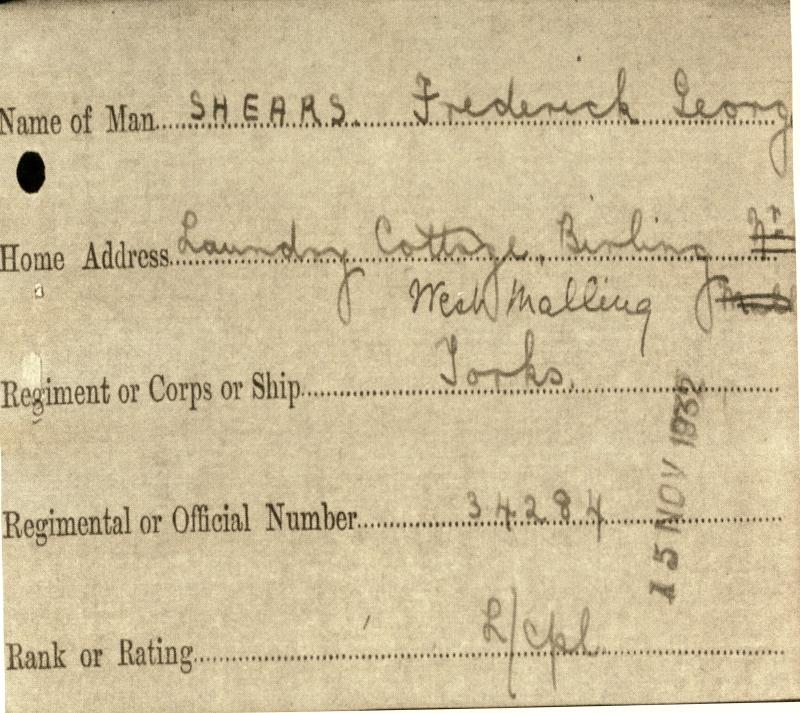 Name of Man SHEARS. Frederick Georg
Home Address Laundry Cottage, Birling Nr
West Malling
Regiment or Corps or Ship Yorks.
Regimental or Official Number 34284
Rank or Rating L/Cpl
15 NOV 1932